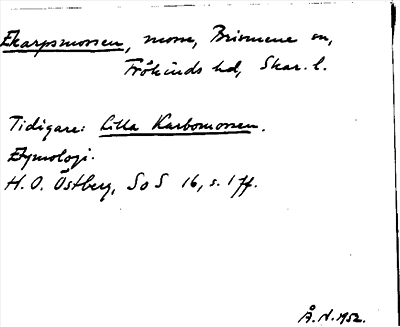 Ekarpsmossen, mosse, Brismene sn,
Frökinds hd, Skar. l.
Tidigare: Lilla Karbomossen.
Etymologi.
H. O. Östberg, SoS 16, s. 1 ff.
Å. N. 1952.